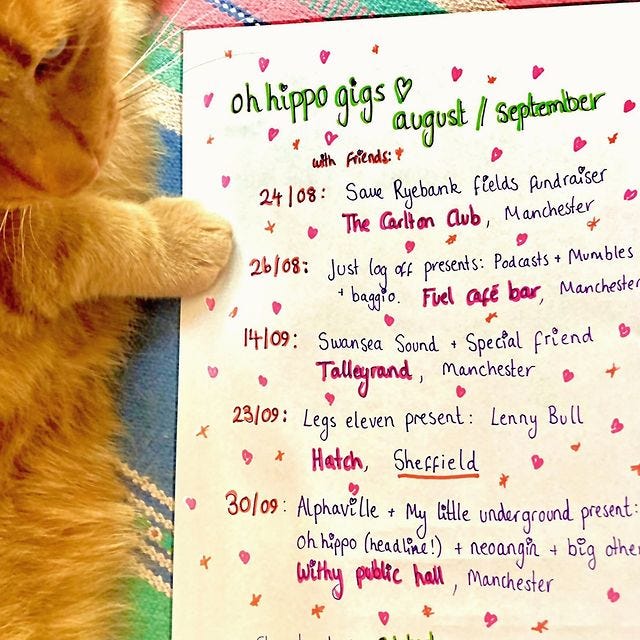 oh hippo gigs ♡
august / september
with friends:
24/08: Save Ryebank fields fundraiser
The Carlton Club, Manchester
26/08: Just log off presents: Podcasts + Mumbles
+ baggio. Fuel café bar, Manchester
14/09: Swansea Sound + Special friend
Talleyrand, Manchester
23/09: Legs eleven present: Lenny Bull
Hatch, Sheffield
30/09: Alphaville + My little underground present:
oh hippo (headline!) + neoangin + big othe
Withy public hall, Manchester